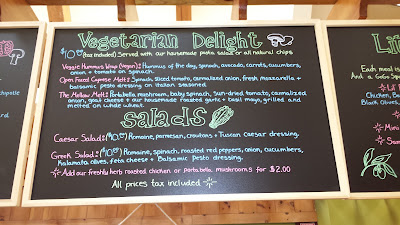 Vegetarian Delight
$10.00 (tax included) Served with our homemade pasta salad or all natural chips
Veggie Hummus Wrap (Vegan): Hummus of the day, spinach, avocado, carrots, cucumbers,
onion + tomato on spinach.
Open Faced Caprese Melt: Spinach, sliced tomato, carmalized onion, fresh mozzarella +
Balsamic pesto dressing on Italian seasoned.
The Mellow Melt: Portabella mushroom, baby spinach, sun-dried tomato, carmalized
onion, goat cheese + our homemade roasted garlic + basil mayo, grilled and
melted on whole wheat.
Salads
Caesar Salad: ($10.00) Romaine, parmesan, croutons + Tuscan Caesar dressing.
Greek Salad: ($10.00) Romaine, spinach, roasted red peppers, onion, cucumbers,
Kalamata olives, feta cheese + Balsamic Pesto dressing.
Add our freshly herb roasted chicken or portabella mushrooms for $2.00
All prices tax included
Each meal is
And a GoGo
Chicken,
Black Olives,